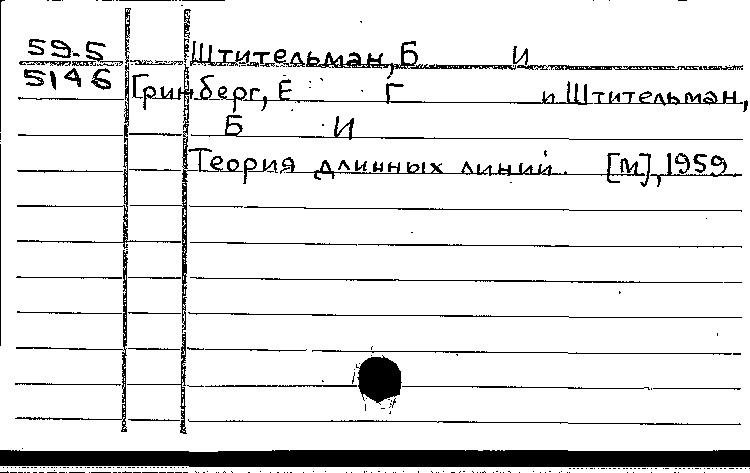 59-5 Штительман, Б И
5146 Гринберг, Е Г и Штительман,
Б И
Теория длинных линий. [М], 1959